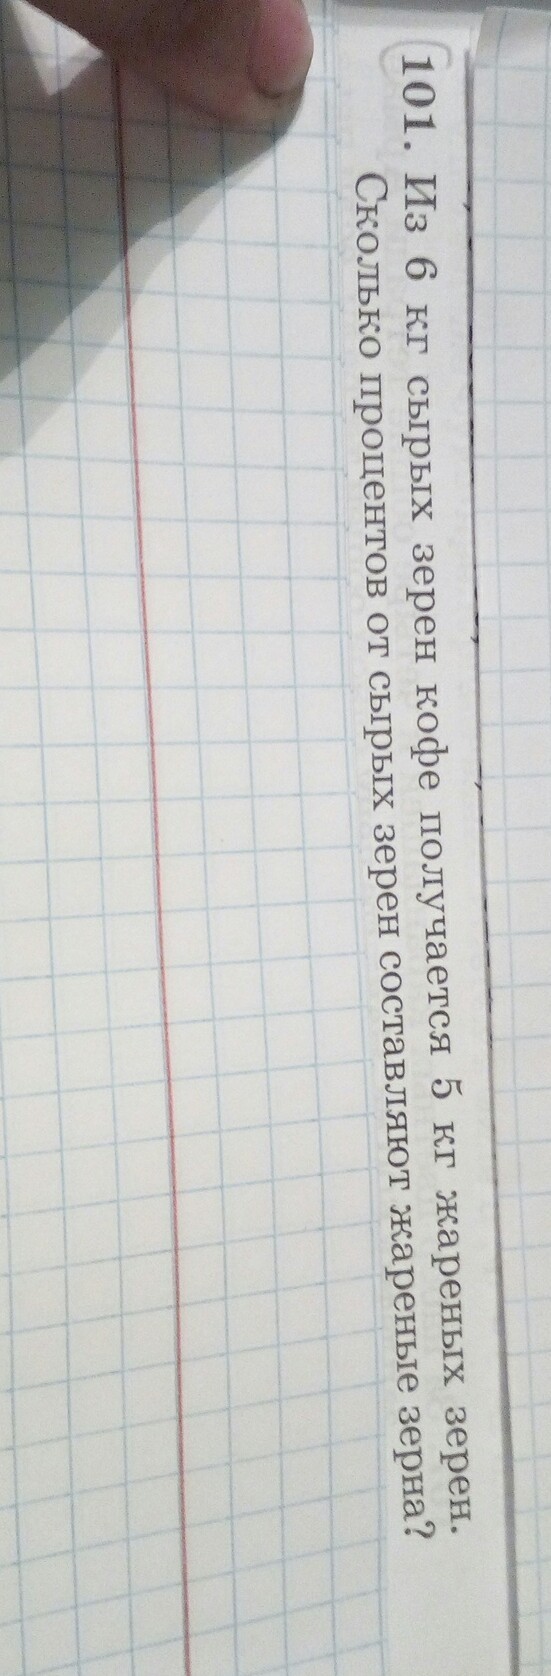 101. Из 6 кг сырых зерен кофе получается 5 кг жареных зерен.
Сколько процентов от сырых зерен составляют жареные зерна?